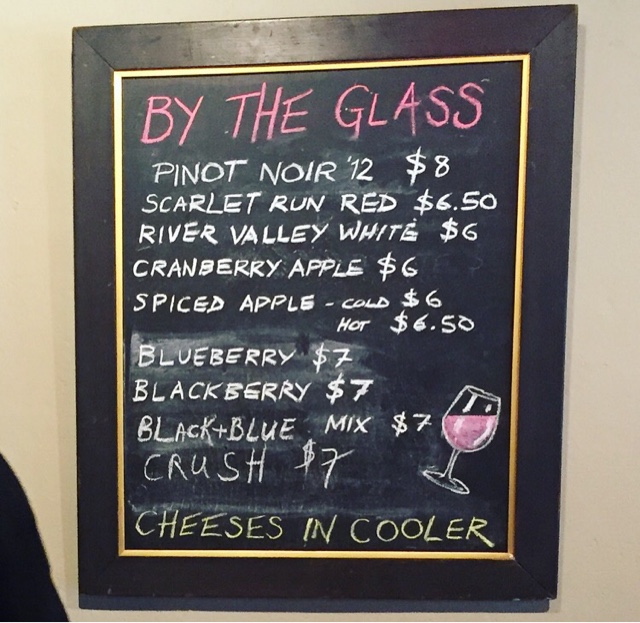 BY THE GLASS
PINOT NOIR '12 $8
SCARLET RUN RED $6.50
RIVER VALLEY WHITE $6
CRANBERRY APPLE $6
SPICED APPLE - COLD $6
HOT $6.50
BLUEBERRY $7
BLACKBERRY $7
BLACK+BLUE MIX $7
CRUSH $7
CHEESES IN COOLER